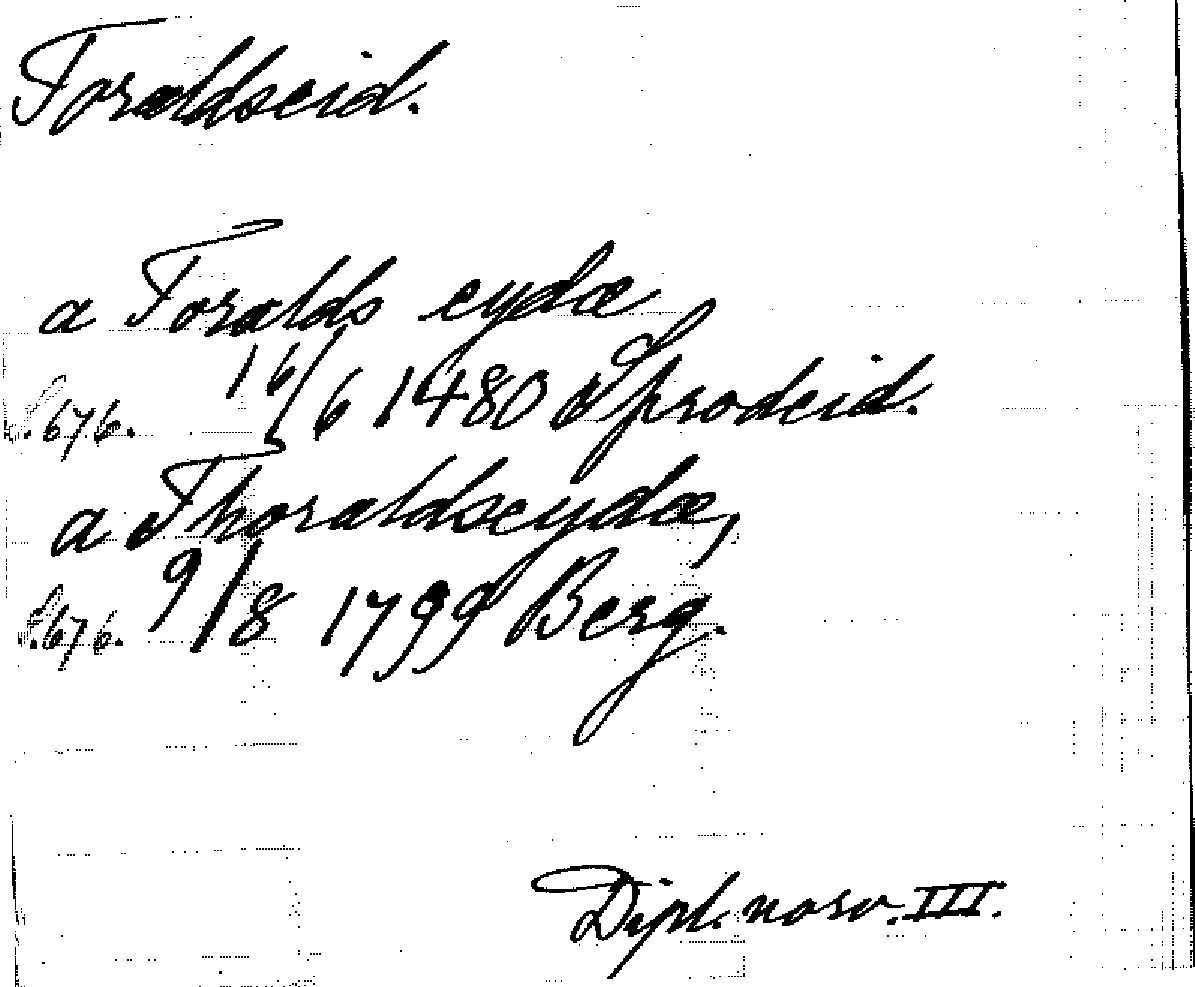 Foraldseid.
a Foralds eydæ
S. 676. 16/6 1480 Sprodeid.
a Thoraldseydæ,
S. 676. 9/8 1799 Berg.
Dipl. norv. III.